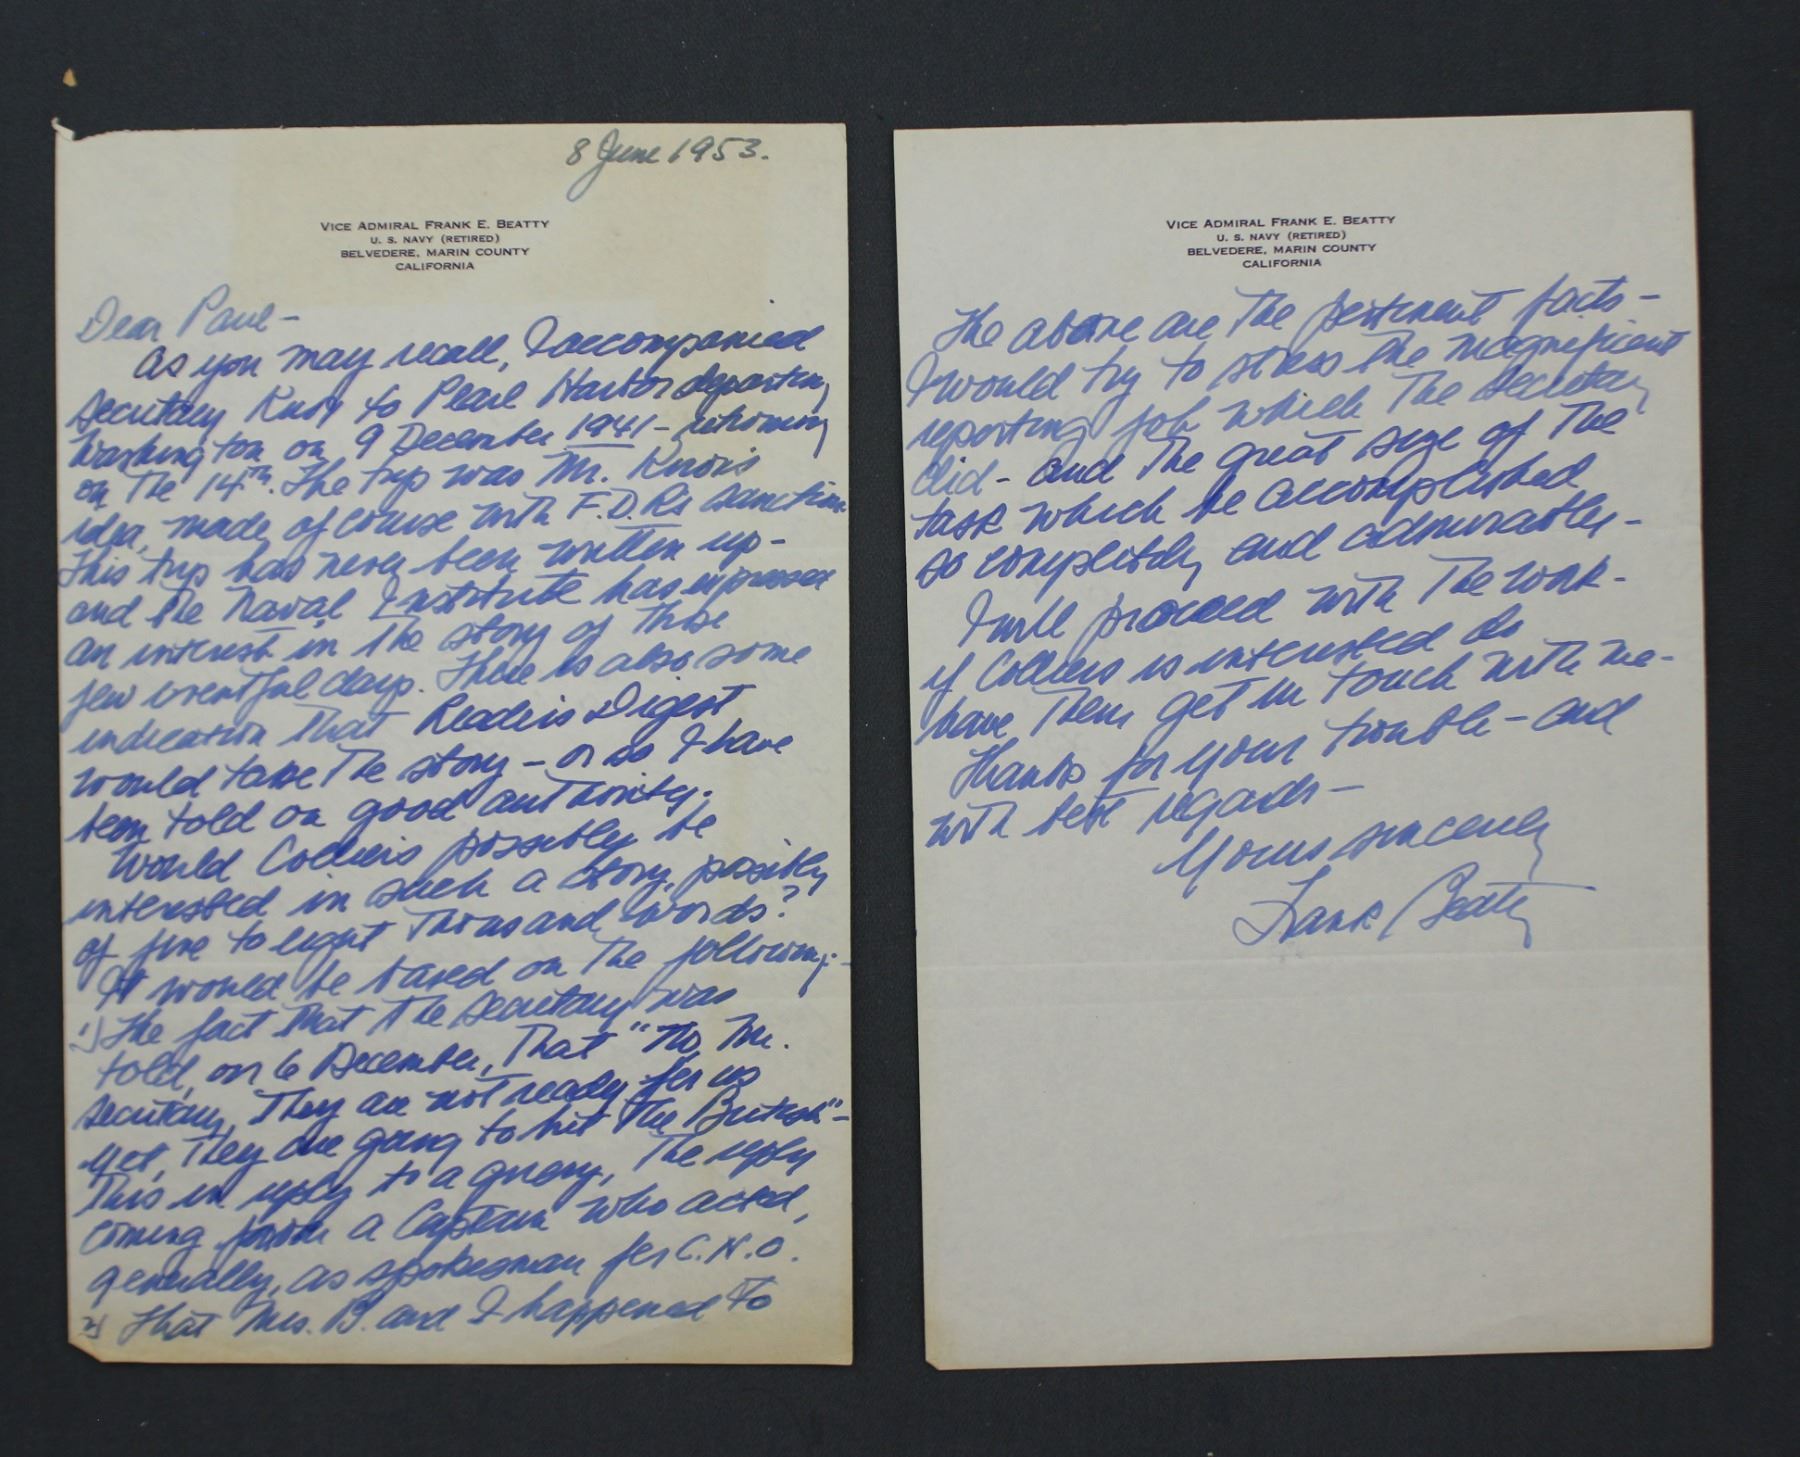 8 June 1953.
VICE ADMIRAL FRANK E. BEATTY
U. S. NAVY (RETIRED)
BELVEDERE, MARIN COUNTY
CALIFORNIA
Dear Paul-
As you may recall, I accompanied
Secretary Knox to Pearl Harbor departing
Washington on 9 December 1941 - returning
on the 14th. The trip was Mr. Knox's
idea, made, of course with F.D.R's sanction.
This trip has never been written up-
and the Naval Institute has expressed
an interest in the story of those
few eventful days. There is also some
indication that Readers Digest
would take the story - or so I have
been told on good authority.
Would Colliers possibly be
interested in such a story, possibly
of five to eight thousand words?
It would be based on the following:-
1) The fact that the Secretary was
told, on 6 December, that "No, Mr.
Secretary, They are not ready for us
yet, They are going to hit the British"-
This in reply to a query, the reply
coming from a Captain who acted,
generally, as spokesman for C.N.O.
2) That Mrs. B. and I happened to
VICE ADMIRAL FRANK E. BEATTY
U. S. NAVY (RETIRED)
BELVEDERE, MARIN COUNTY
CALIFORNIA
The above are the pertinent facts-
I would try to stress the magnificent
reporting job which the Secretary
did - and the great size of the
task which he accomplished
so completely and admirably-
I will proceed with the work-
if Colliers is interested do
have them get in touch with me-
Thanks for your trouble - and
with best regards-
Yours sincerely
Frank Beatty